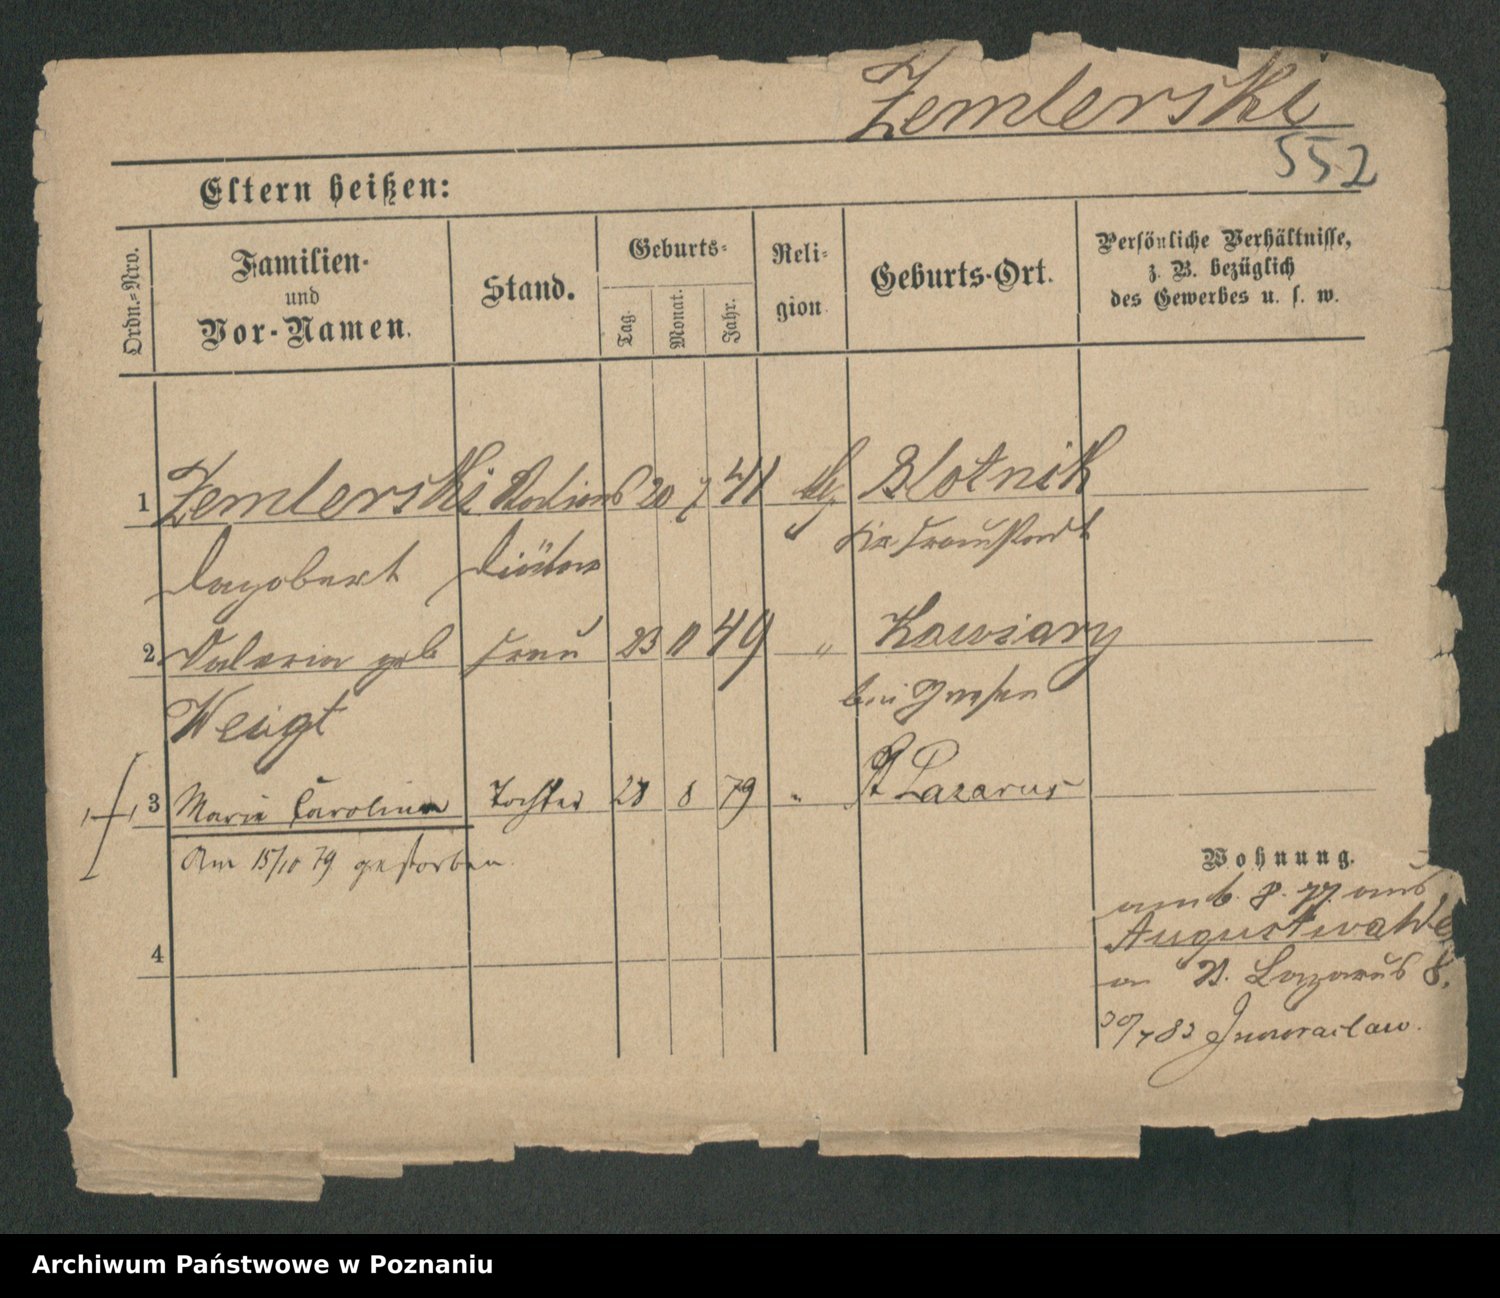 Zemlerski
552
Eltern heißen:
Ordn.-Nro.
Familien-
und
Vor-Namen.
Stand.
Geburts-
Tag.
Monat.
Jahr.
Reli-
gion
Geburts-Ort.
Persönliche Verhältnisse,
z. B. bezüglich
des Gewerbes u. s. w.
1 Zemlerski Stations 20 7 41 Blotnik
Kr Fraustadt
Dagobert Diätar
2 Valeria geb Frau 23 11 49 " Kawiary
Weigt bei Gnesen
3 Marie Caroline Tochter 28 8 79 " St Lazarus
Am 15/10 79 gestorben.
4
Wohnung.
am 6. 8. 77. aus
Augustwalde
n St. Lazarus 8.
30/7 83 Inowraclaw.
Archiwum Państwowe w Poznaniu